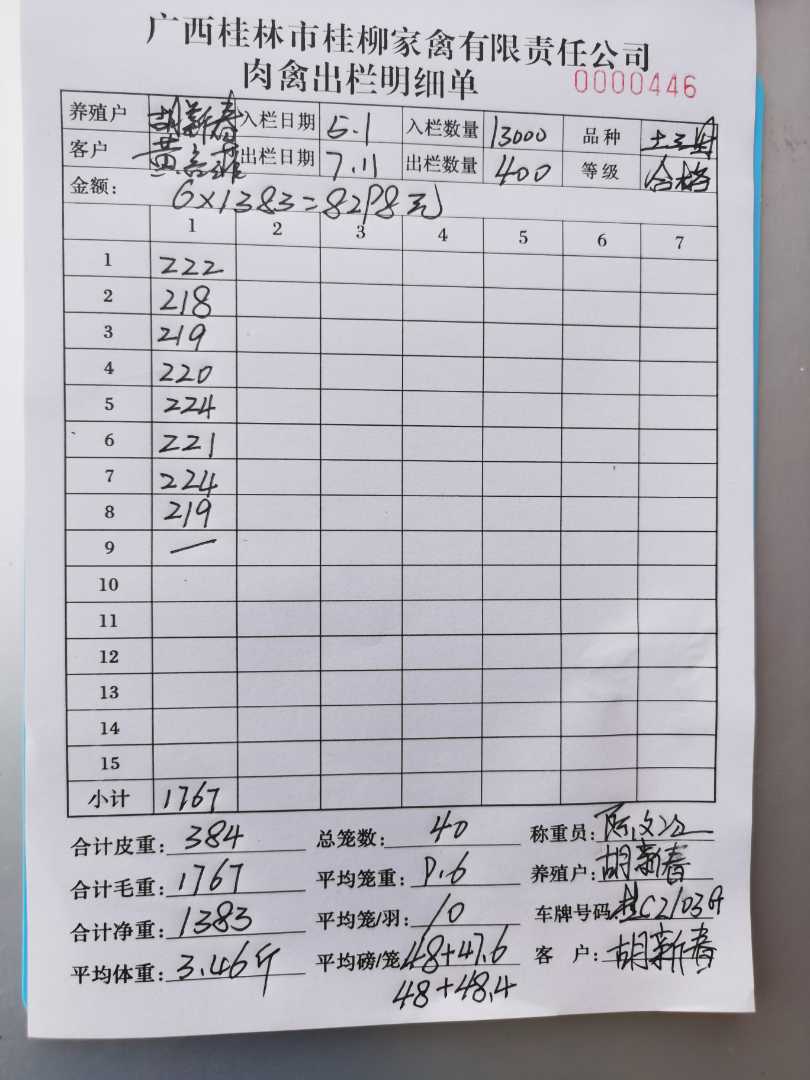 广西桂林市桂柳家禽有限责任公司
肉禽出栏明细单 0000446
养殖户 胡新春 入栏日期 5.1 入栏数量 13000 品种
客户 黄 出栏日期 7.11 出栏数量 400 等级 合格
金额: 6×1383=8298元
1 2 3 4 5 6 7
1 222
2 218
3 219
4 220
5 224
6 221
7 224
8 219
9 —
10
11
12
13
14
15
小计 1767
合计皮重: 384 总笼数: 40 称重员:
合计毛重: 1767 平均笼重: 9.6 养殖户: 胡新春
合计净重: 1383 平均笼/羽: 10 车牌号码: 桂C2103
平均体重: 3.46斤 平均磅/笼 48+47.6 客 户: 胡新春
48+48.4